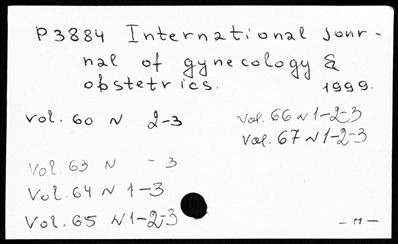 P3884 International Jour-
nal of gynecology &
obstetrics. 1999.
vol. 60 N 2-3
vol. 66 N 1-2-3
vol. 67 N 1-2-3
vol. 63 N - 3
vol. 64 N 1-3
vol. 65 N 1-2-3